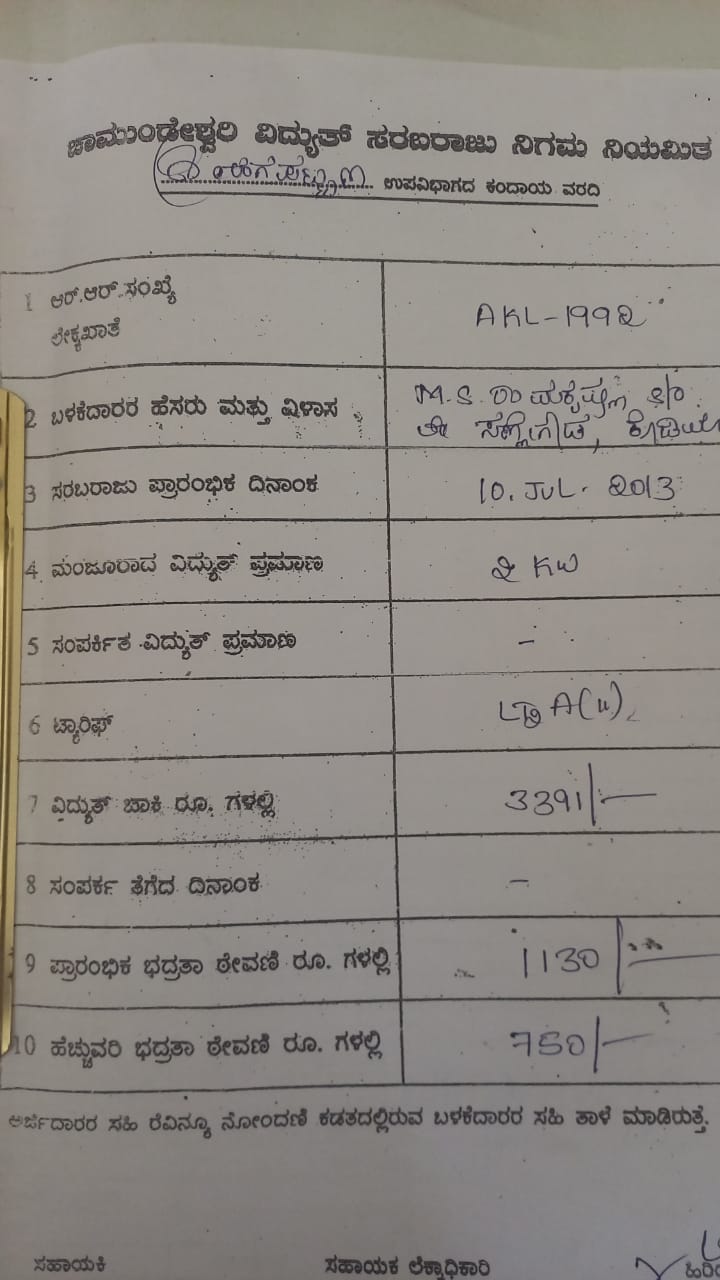 ಚಾಮುಂಡೇಶ್ವರಿ ವಿದ್ಯುತ್ ಸರಬರಾಜು ನಿಗಮ ನಿಯಮಿತ
ಉಪವಿಭಾಗದ ಕಂದಾಯ ವರದಿ
1 ಆರ್.ಆರ್.ಸಂಖ್ಯೆ
ಲೆಕ್ಕಖಾತೆ
AKL-1992
2 ಬಳಕೆದಾರರ ಹೆಸರು ಮತ್ತು ವಿಳಾಸ
M.S. S/o
3 ಸರಬರಾಜು ಪ್ರಾರಂಭಿಕ ದಿನಾಂಕ 10. JUL. 2013
4 ಮಂಜೂರಾದ ವಿದ್ಯುತ್ ಪ್ರಮಾಣ 2 KW
5 ಸಂಪರ್ಕಿತ ವಿದ್ಯುತ್ ಪ್ರಮಾಣ -
6 ಟ್ಯಾರಿಫ್ A(ii)
7 ವಿದ್ಯುತ್ ಬಾಕಿ ರೂ. ಗಳಲ್ಲಿ 3391/-
8 ಸಂಪರ್ಕ ತೆಗೆದ ದಿನಾಂಕ -
9 ಪ್ರಾರಂಭಿಕ ಭದ್ರತಾ ಠೇವಣಿ ರೂ. ಗಳಲ್ಲಿ 1130/-
10 ಹೆಚ್ಚುವರಿ ಭದ್ರತಾ ಠೇವಣಿ ರೂ. ಗಳಲ್ಲಿ 750/-
ಅರ್ಜಿದಾರರ ಸಹಿ ರೆವಿನ್ಯೂ ನೋಂದಣಿ ಕಡತದಲ್ಲಿರುವ ಬಳಕೆದಾರರ ಸಹಿ ತಾಳೆ ಮಾಡಿರುತ್ತೆ.
ಸಹಾಯಕಿ ಸಹಾಯಕ ಲೆಕ್ಕಾಧಿಕಾರಿ